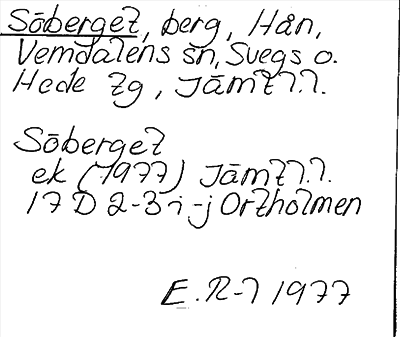 Söberget, berg, Hån,
Vemdalens sn, Svegs o.
Hede tg, Jämtl.l.
Söberget
ek (1977) Jämtl.l.
17 D 2-3 i-j Ortholmen
E.R-l 1977